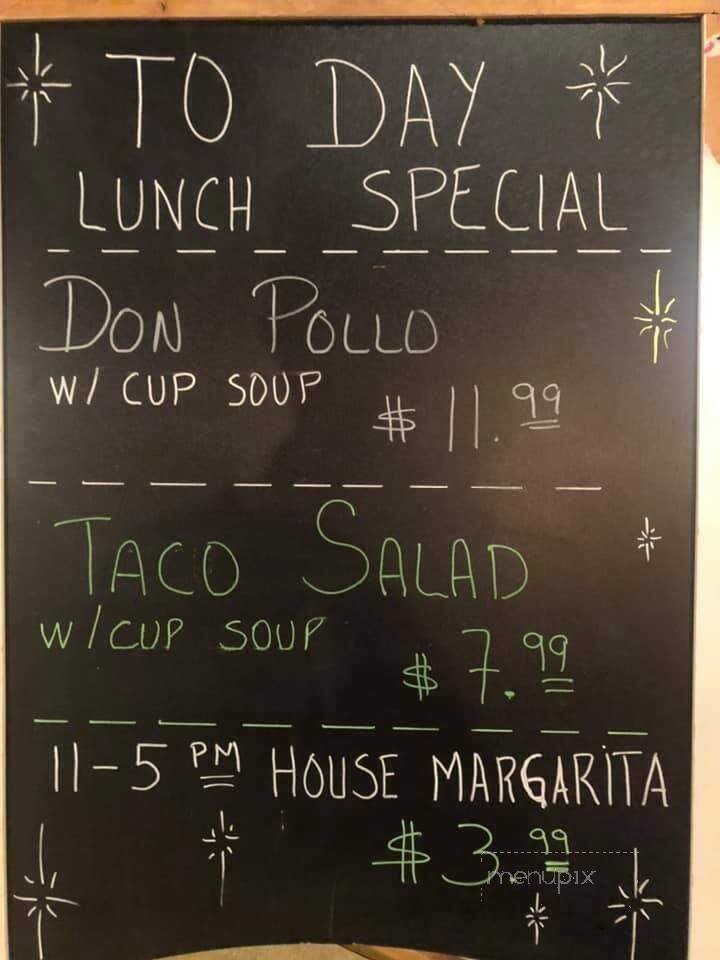 TO DAY
LUNCH SPECIAL
DON POLLO
W/ CUP SOUP
$ 11.99
TACO SALAD
W/ CUP SOUP
$ 7.99
11-5 PM HOUSE MARGARITA
$ 3.99
menupix